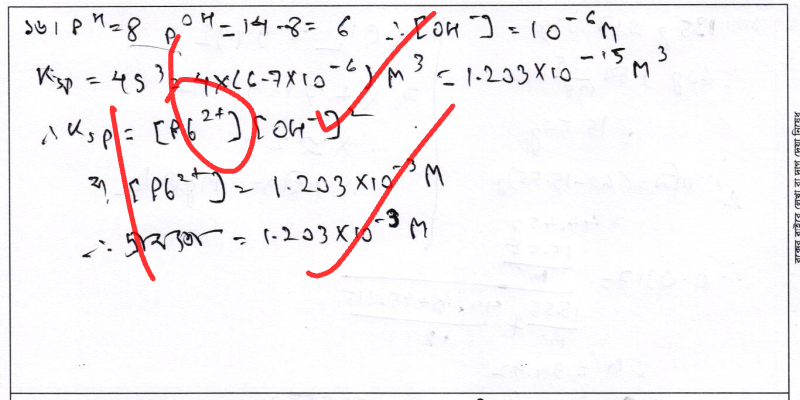 ১৬। pH = 8 pOH = 14 - 8 = 6 ∴ [OH⁻] = 10⁻⁶ M
Ksp = 4s³ = 4×(6.7×10⁻⁶) M³ = 1.203×10⁻¹⁵ M³
∴ Ksp = [Pb²⁺] [OH⁻]²
বা, [Pb²⁺] = 1.203×10⁻³ M
∴ দ্রাব্যতা = 1.203×10⁻³ M